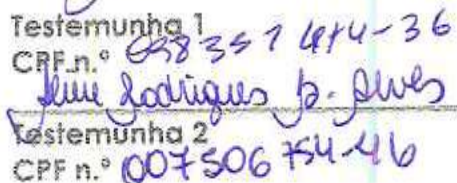 Testemunha 1
CPF n.º 658 351 414-36
Rodrigues p. Alves
Testemunha 2
CPF n.º 007506754-46